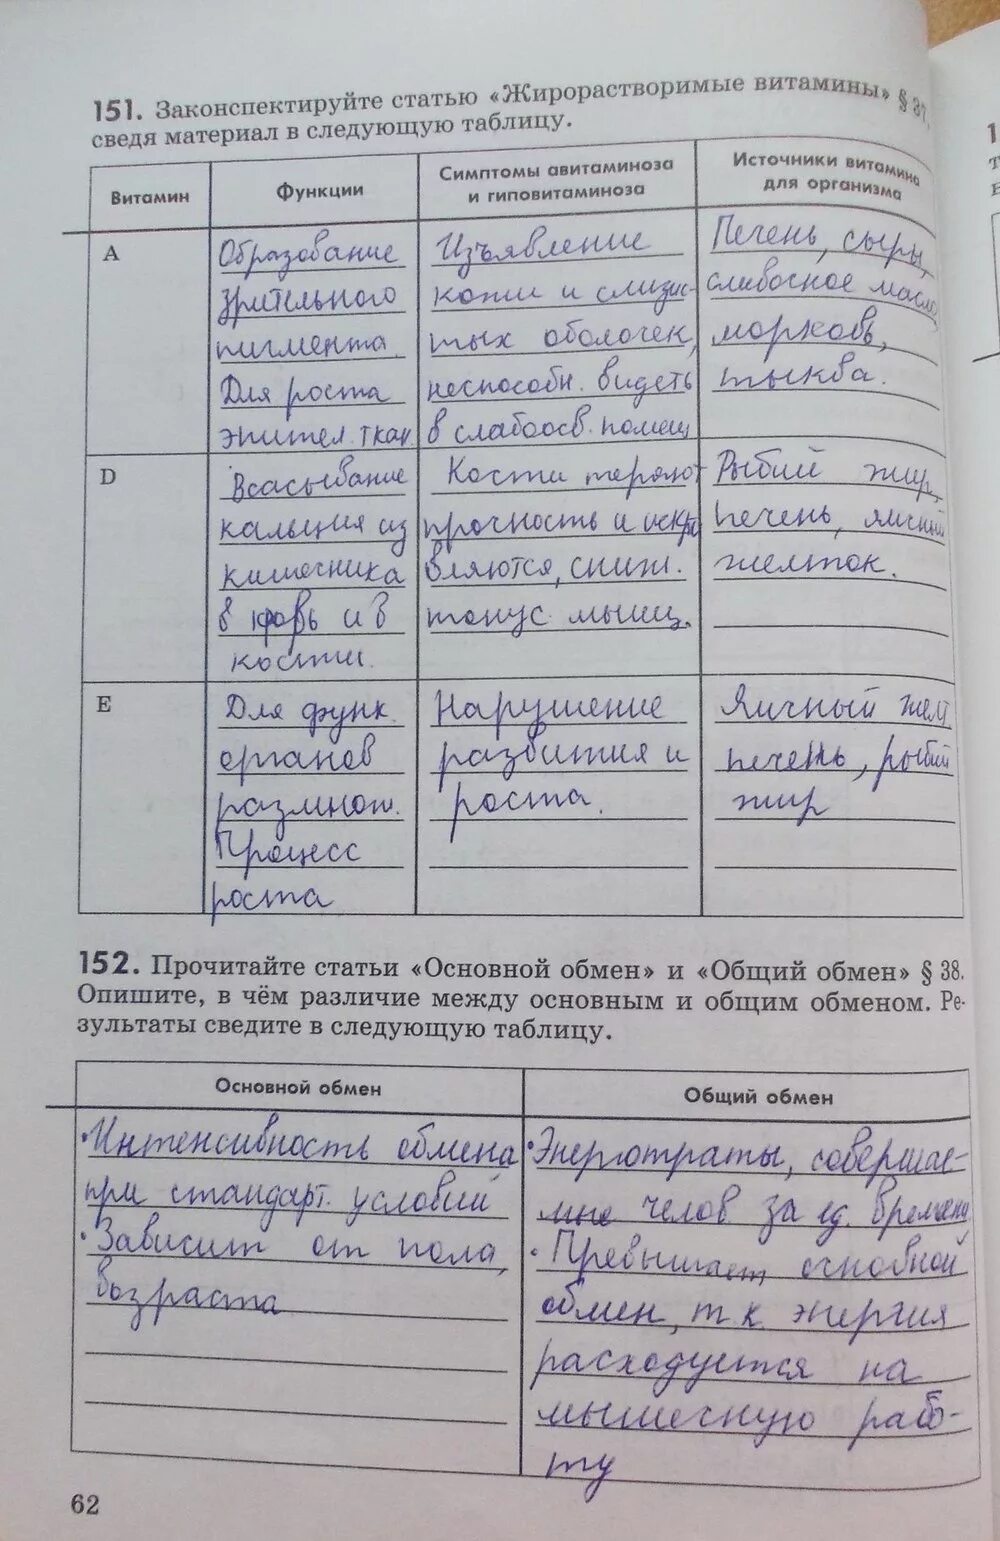 151. Законспектируйте статью «Жирорастворимые витамины» § 37,
сведя материал в следующую таблицу.
Витамин
Функции
Симптомы авитаминоза
и гиповитаминоза
Источники витамина
для организма
А
Образование
зрительного
пигмента
Для роста
эпител. ткан
Изъявление
кожи и слизис
тых оболочек,
неспособн. видеть
в слабоосв. помещ
Печень, сыры,
сливочное масло,
морковь,
тыква.
D
Всасывание
кальция из
кишечника
в кровь и в
кости.
Кости теряют
прочность и искри
вляются, сниж.
тонус мышц.
Рыбий жир,
печень, яичный
желток.
E
Для функ.
органов
размнож.
Процесс
роста
Нарушение
развития и
роста.
Яичный желт.
печень, рыбий
жир
152. Прочитайте статьи «Основной обмен» и «Общий обмен» § 38.
Опишите, в чём различие между основным и общим обменом. Ре-
зультаты сведите в следующую таблицу.
Основной обмен
Общий обмен
• Интенсивность обмена
при стандарт. условий
• Зависит от пола,
возраста
• Энерготраты, совершае-
мые челов за ед. времени
• Превышает основной
обмен, т.к энергия
расходуется на
мышечную рабо-
ту
62